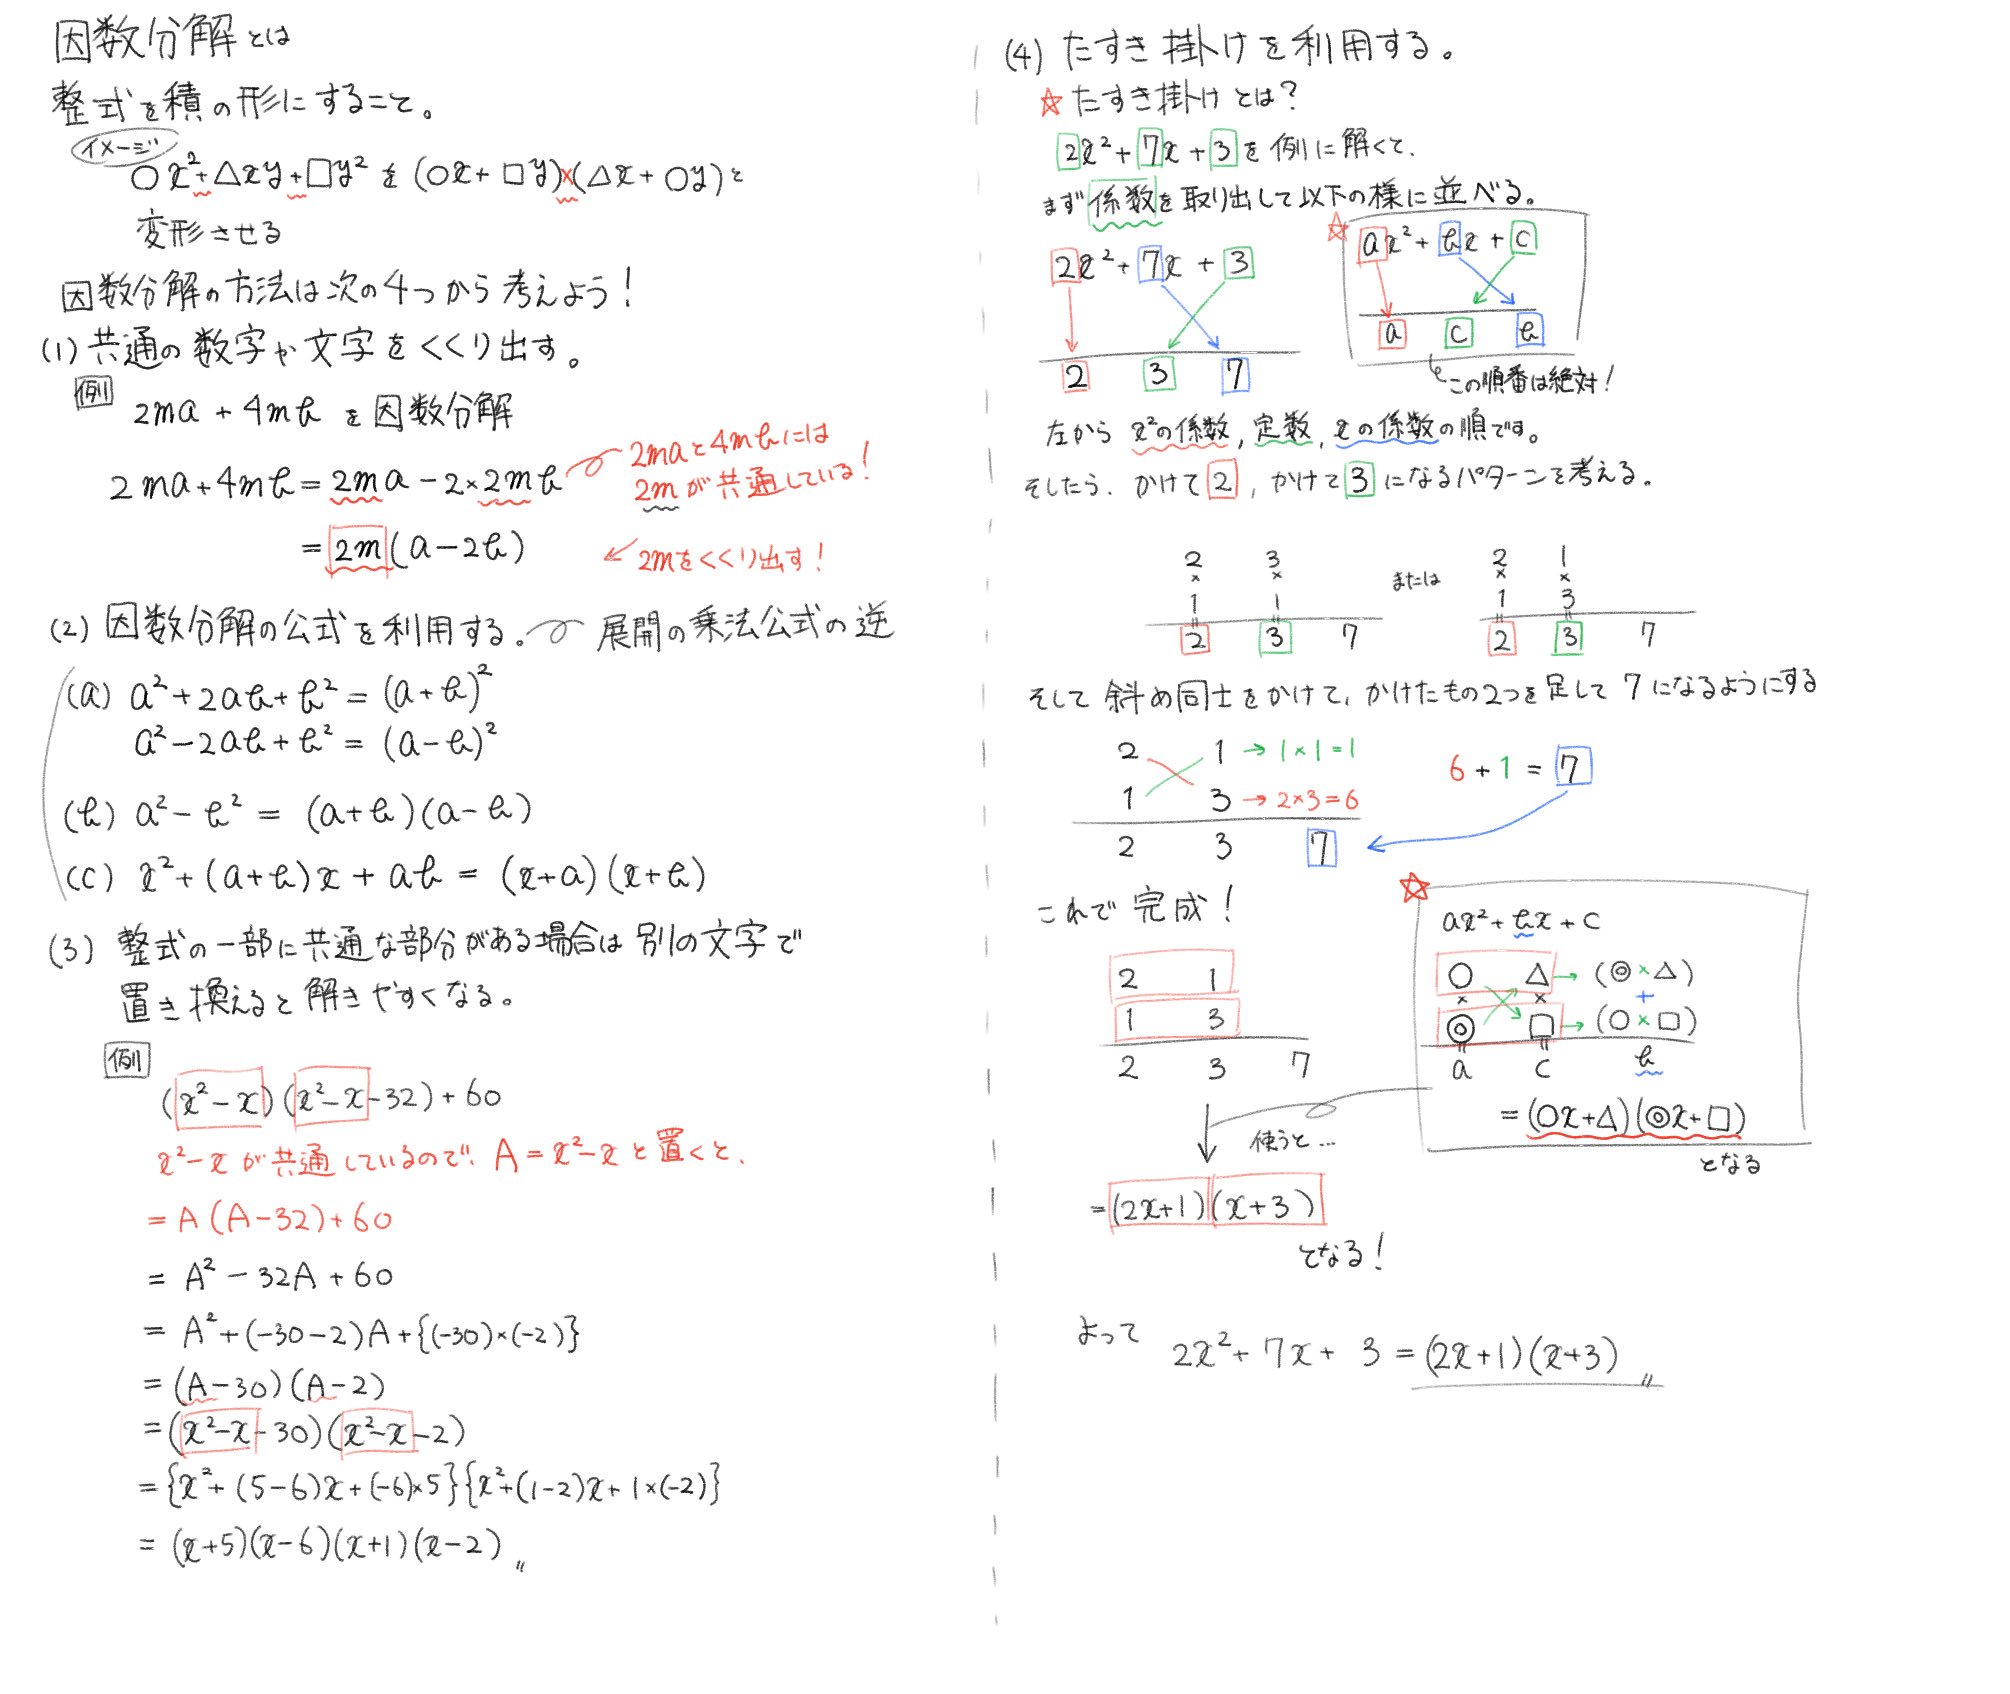 因数分解とは
整式を積の形にすること。
イメージ
○x²+△xy+□y²を(○x+□y)×(△x+○y)と
変形させる
因数分解の方法は次の4つから考えよう!
(1) 共通の数字や文字をくくり出す。
例
2ma + 4mb を因数分解
2ma+4mb = 2ma - 2×2mb
2maと4mbには
2mが共通している!
= 2m(a-2b)
← 2mをくくり出す!
(2) 因数分解の公式を利用する。 展開の乗法公式の逆
(a) a²+2ab+b² = (a+b)²
a²-2ab+b² = (a-b)²
(b) a²-b² = (a+b)(a-b)
(c) x²+(a+b)x+ab = (x+a)(x+b)
(3) 整式の一部に共通な部分がある場合は別の文字で
置き換えると解きやすくなる。
例
(x²-x)(x²-x-32)+60
x²-xが共通しているので、A=x²-xと置くと、
= A(A-32)+60
= A²-32A+60
= A²+(-30-2)A+{(-30)×(-2)}
= (A-30)(A-2)
= (x²-x-30)(x²-x-2)
= {x²+(5-6)x+(-6)×5}{x²+(1-2)x+1×(-2)}
= (x+5)(x-6)(x+1)(x-2)〃
(4) たすき掛けを利用する。
☆たすき掛けとは?
2x²+7x+3を例に解くと、
まず係数を取り出して以下の様に並べる。
2x²+7x+3
2 3 7
☆ ax²+bx+c
a c b
この順番は絶対!
左からx²の係数,定数,xの係数の順です。
そしたら、かけて2, かけて3になるパターンを考える。
2 3
× ×
1 1
= =
2 3 7
または
2 1
× ×
1 3
= =
2 3 7
そして斜め同士をかけて、かけたもの2つを足して7になるようにする
2 1 → 1×1=1
1 3 → 2×3=6
2 3 7
6+1=7
これで完成!
2 1
1 3
2 3 7
☆
ax²+bx+c
○ △ → (◎×△)
× × +
◎ □ → (○×□)
= =
a c b
=(○x+△)(◎x+□)
となる
使うと…
=(2x+1)(x+3)
となる!
よって 2x²+7x+3=(2x+1)(x+3)〃